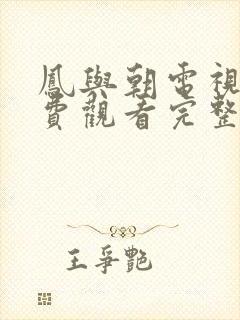 鳳與朝電視
費觀看完整
王爭艷